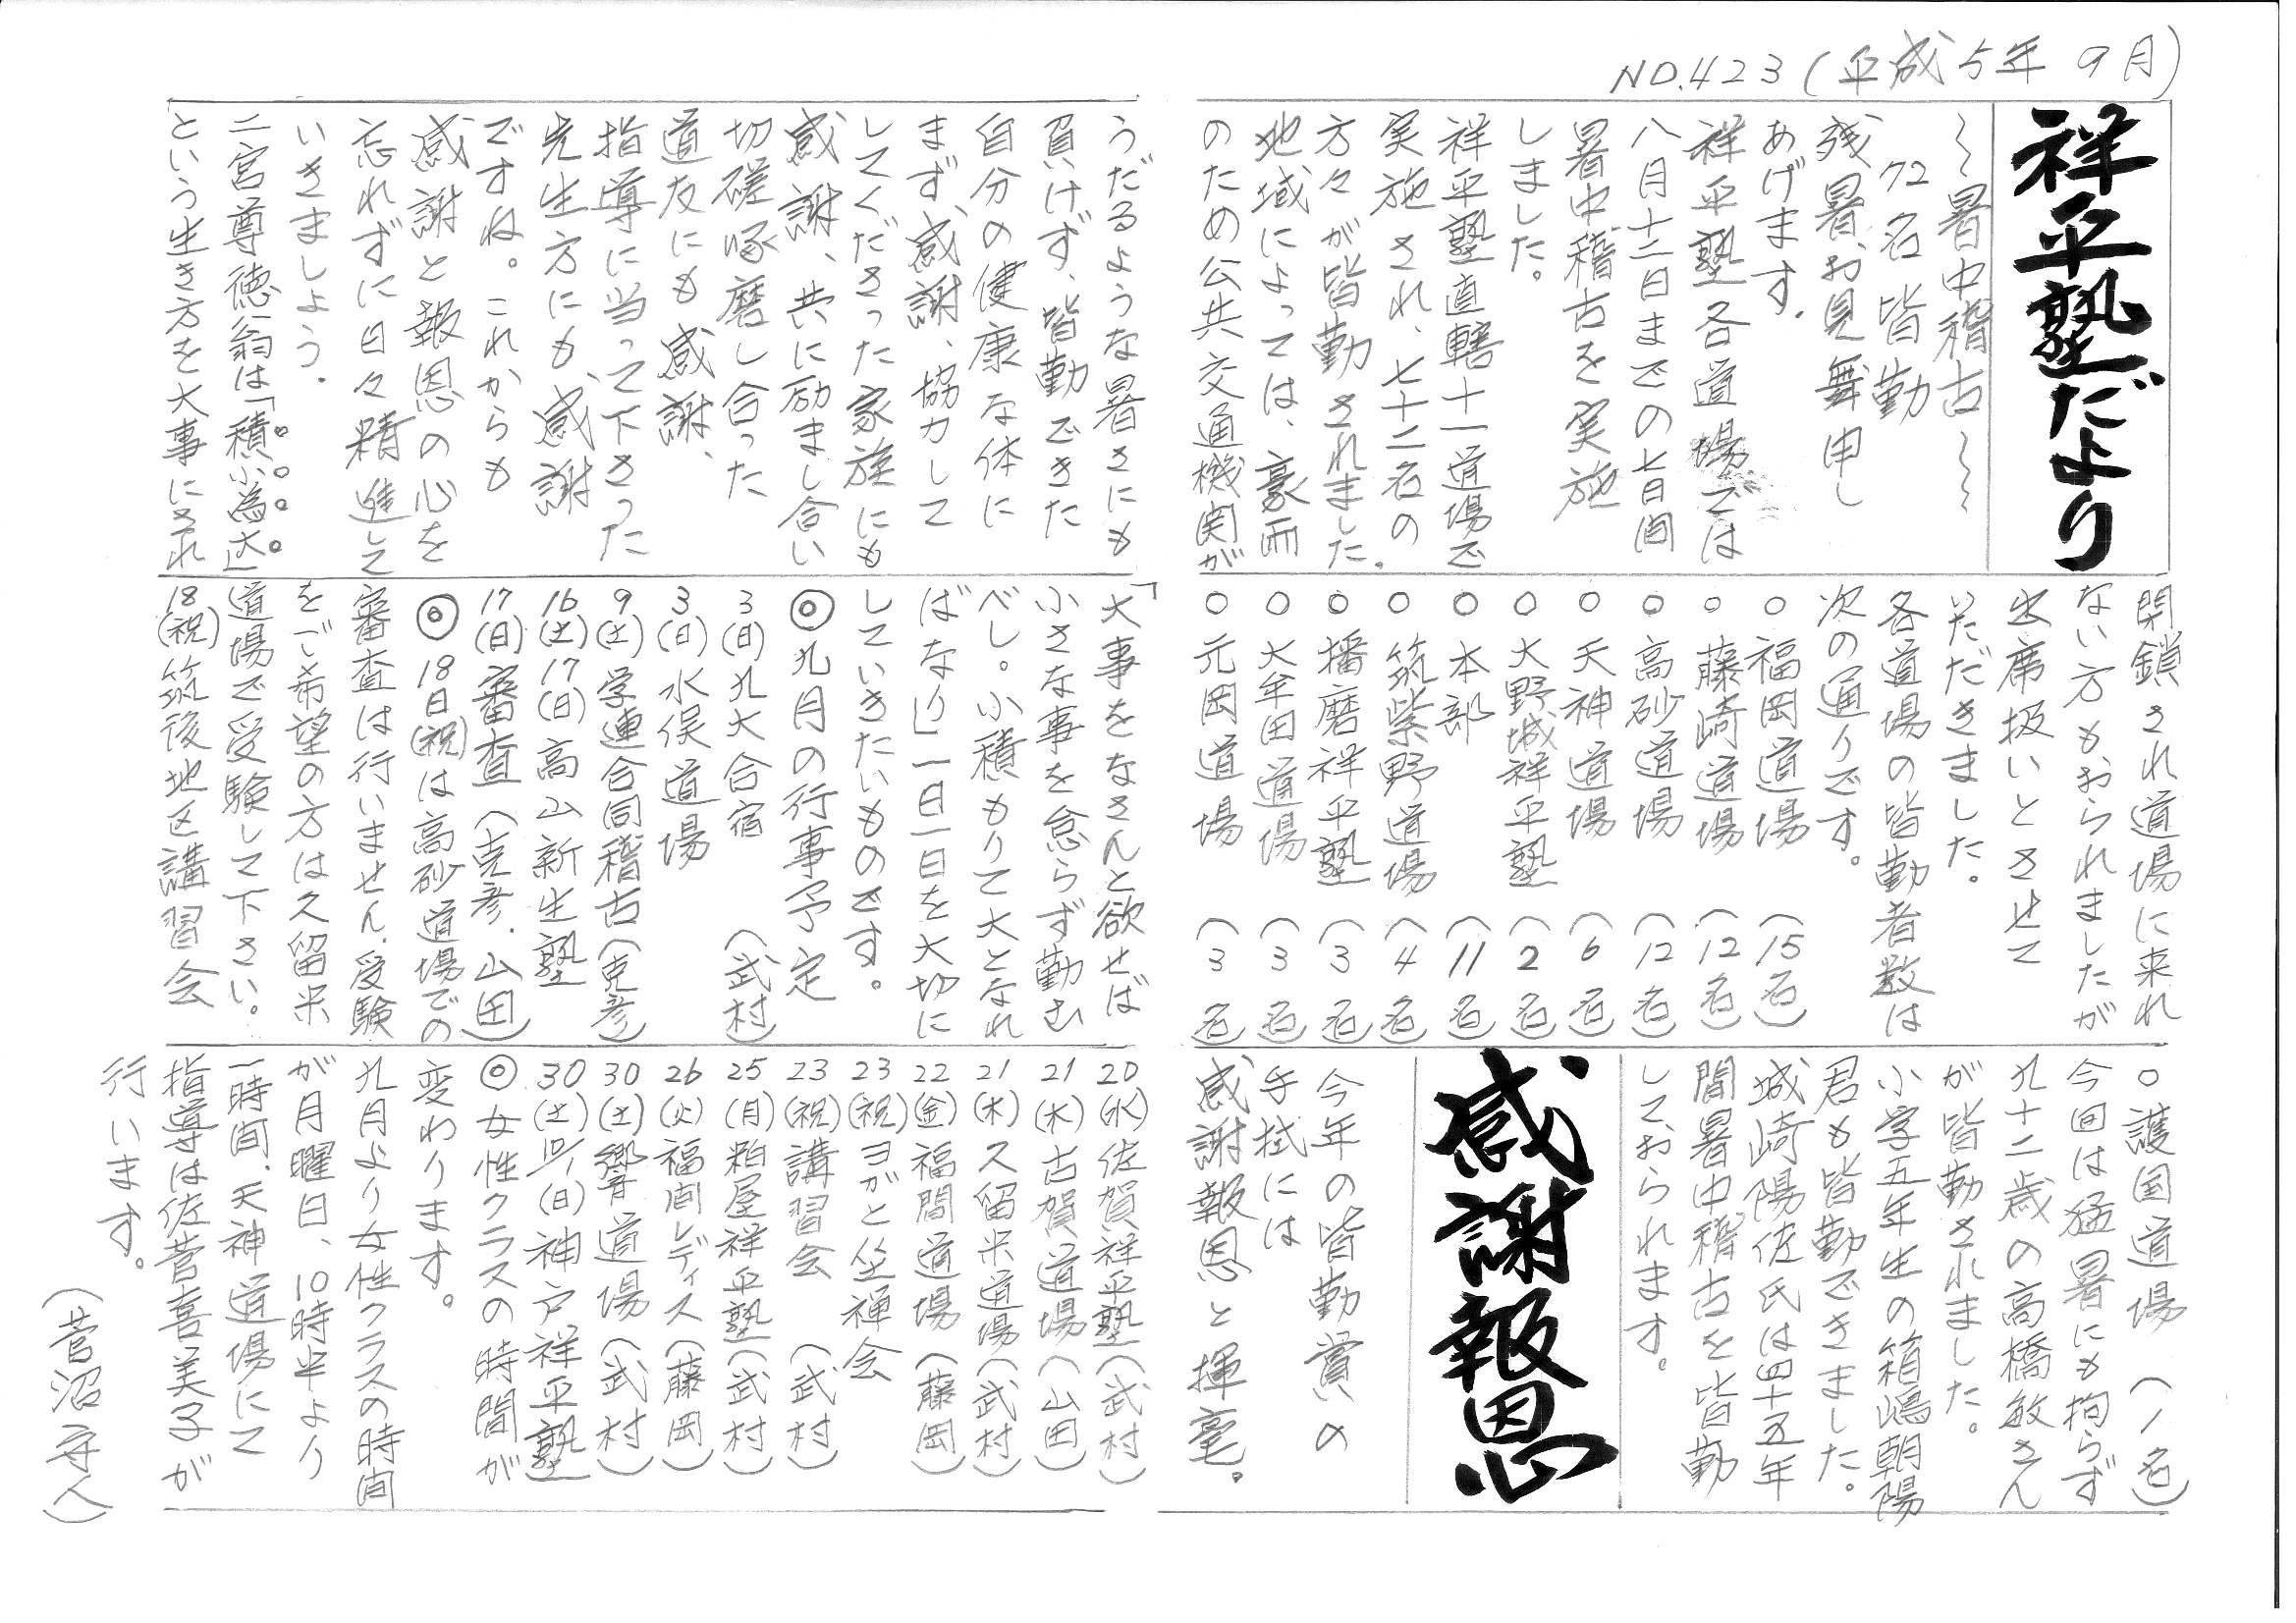 NO.423(平成5年 9月)
祥平塾だより
～暑中稽古～
72名皆勤
残暑、お見舞申し
あげます.
祥平塾各道場では
八月十二日までの七日间
暑中稽古を実施
しました。
祥平塾直轄十一道場で
実施され、七十二名の
方々が皆勤されました.
地域によっては、豪雨
のため公共交通機関が
閉鎖され道場に来れ
ない方もおられましたが
出席扱いとさせて
いただきました。
各道場の皆勤者数は
次の通りです。
○福岡道場 (15名)
○藤崎道場 (12名)
○高砂道場 (12名)
○天神道場 (6名)
○大野城祥平塾 (2名)
○本部 (11名)
○筑紫野道場 (4名)
○播磨祥平塾 (3名)
○大牟田道場 (3名)
○元岡道場 (3名)
○護国道場 (1名)
今回は猛暑にも拘らず
九十二歳の高橋敏さん
が皆勤されました。
小学五年生の箱嶋朝陽
君も皆勤できました。
城崎陽佐氏は四十五年
間暑中稽古を皆勤
しておられます。
感謝報恩
今年の皆勤賞の
手拭には
感謝報恩と揮毫。
うだるような暑さにも
負けず、皆勤できた
自分の健康な体に
まず、感謝、協力して
してくださった家族にも
感謝、共に励まし合い
切磋琢磨し合った
道友にも感謝、
指導に当って下さった
先生方にも、感謝
ですね。これからも
感謝と報恩の心を
忘れずに日々精進して
いきましょう.
二宮尊徳翁は「積小為大」
という生き方を大事にされ
「大事をなさんと欲せば
小さな事を怠らず勤む
べし。小積もりて大となれ
ばなり」一日一日を大切に
していきたいものです。
◎九月の行事予定
3(日)九大合宿 (武村)
3(日)水俣道場
9(土)学連合同稽古(克彦)
16(土)17(日)高山新生塾
17(日)審査(克彦.山田)
◎18日(祝)は高砂道場での
審査は行いません.受験
をご希望の方は久留米
道場で受験して下さい。
18(祝)筑後地区講習会
20(水)佐賀祥平塾(武村)
21(木)古賀道場(山田)
21(木)久留米道場(武村)
22(金)福間道場(藤岡)
23(祝)ヨガと坐禅会
23(祝)講習会 (武村)
25(月)粕屋祥平塾(武村)
26(火)福间レディス(藤岡)
30(土)響道場 (武村)
30(土)10/1(日)神戸祥平塾
◎女性クラスの時間が
変わります。
九月より女性クラスの時间
が月曜日、10時半より
一時间.天神道場にて
指導は佐菅喜美子が
行います。
(菅沼守人)